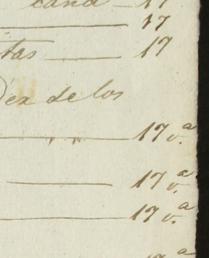 cana - 17
17
tas - 17
Dex de los
" " 17 v.ª
17 v.ª
17 v.ª